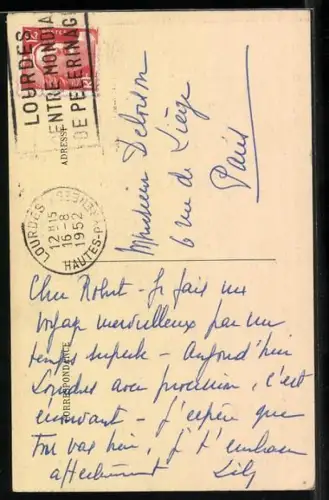 LOURDES
CENTRE MONDIAL
DE PELERINAGE
ADRESSE
LOURDES
12H15
16-8
1952
HAUTES-PYRENEES
Monsieur Deloison
6 rue de Liège
Paris
CORRESPONDANCE
Cher Robert - Je fais un
voyage merveilleux par un
temps superbe - Aujourd'hui
Lourdes avec procession, c'est
émouvant - j'espère que
tu vas bien, je t'embrasse
affectueusement Lily